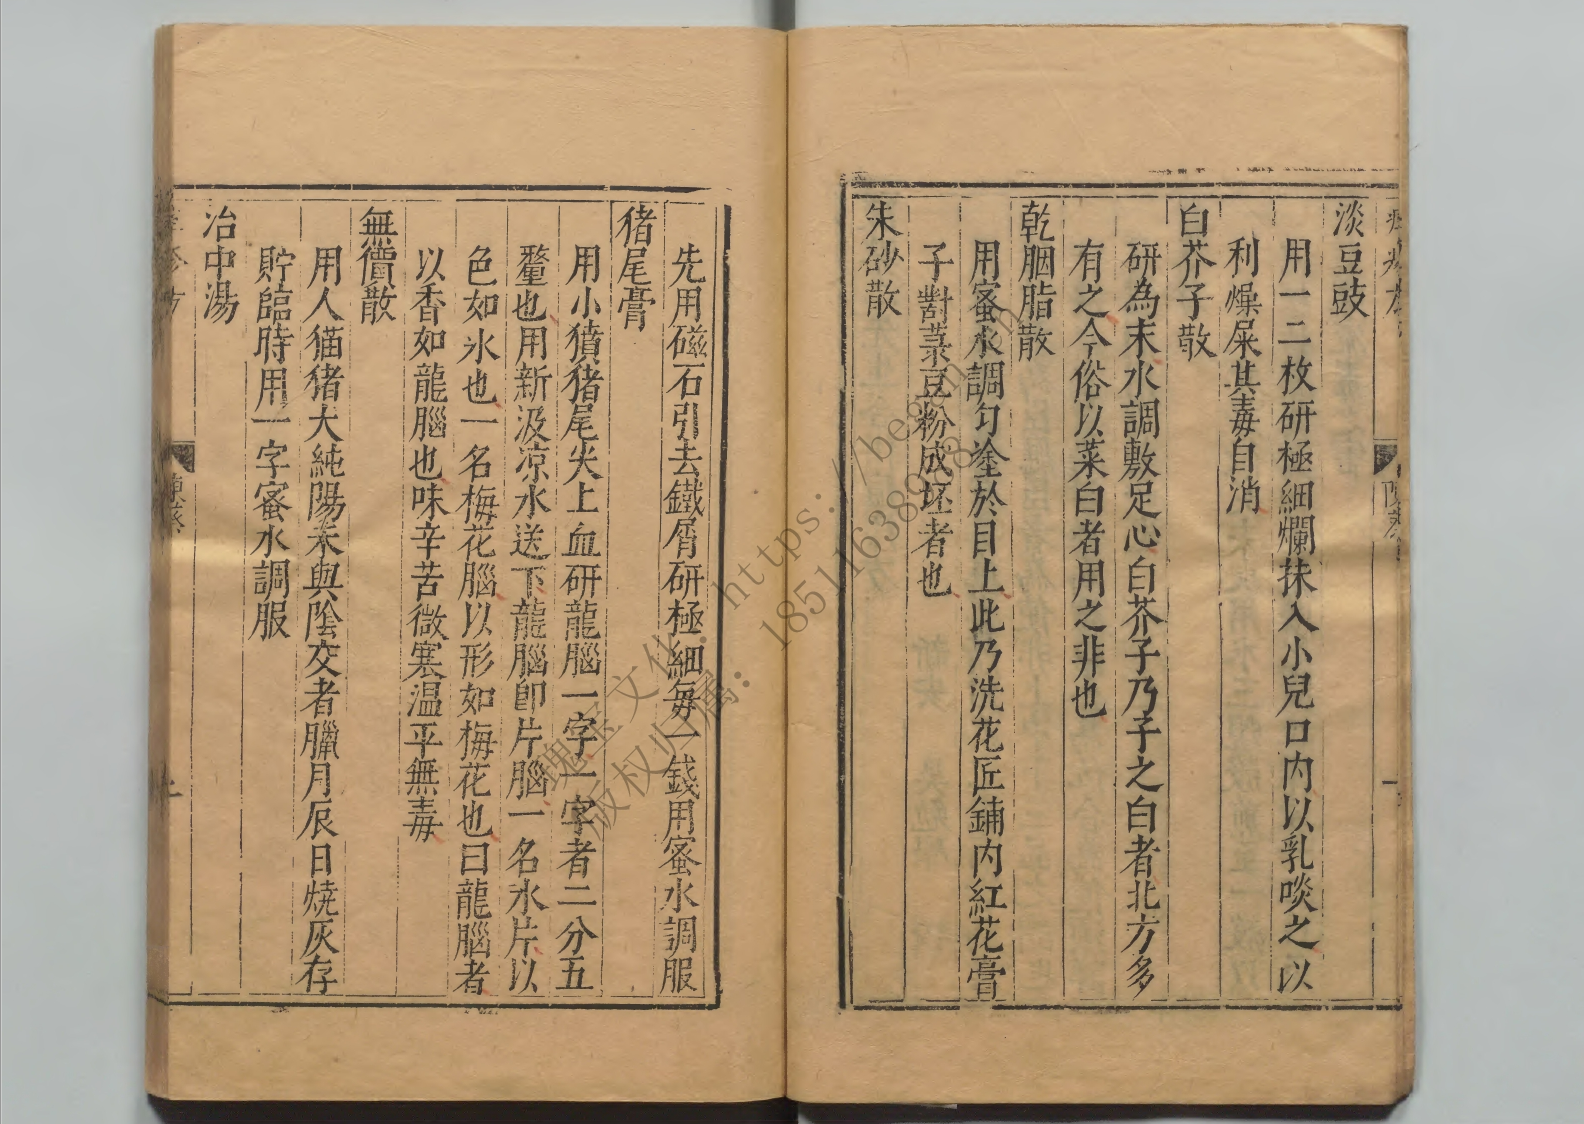 淡豆豉
用一二枚研極細爛抹入小兒口內以乳啖之以
利燥屎其毒自消
白芥子散
研為末水調敷足心白芥子乃子之白者北方多
有之今俗以菜白者用之非也
乾胭脂散
用蜜水調匀塗於目上此乃洗花匠鋪内紅花膏
子對菉豆粉成坯者也
朱砂散
先用磁石引去鐵屑研極細每一錢用蜜水調服
猪尾膏
用小獖猪尾尖上血研龍腦一字一字者二分五
釐也用新汲凉水送下龍腦卽片腦一名氷片以
色如氷也一名梅花腦以形如梅花也曰龍腦者
以香如龍腦也味辛苦微寒温平無毒
無價散
用人猫猪犬純陽未與陰交者臘月辰日燒灰存
貯臨時用一字蜜水調服
治中湯
瑰宝文化：https://bes
版权归属：18511638918